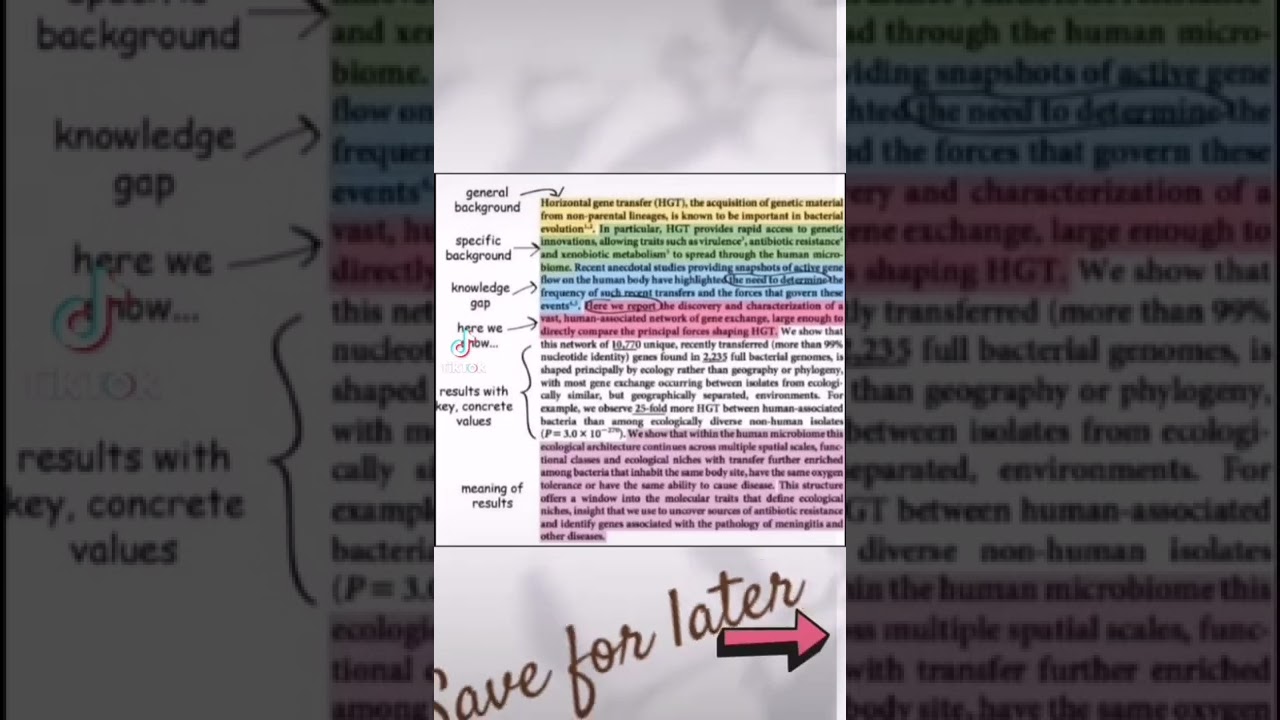 general
background
specific
background
knowledge
gap
here we
show...
results with
key, concrete
values
meaning of
results
Horizontal gene transfer (HGT), the acquisition of genetic material
from non-parental lineages, is known to be important in bacterial
evolution1,2. In particular, HGT provides rapid access to genetic
innovations, allowing traits such as virulence3, antibiotic resistance4
and xenobiotic metabolism5 to spread through the human micro-
biome. Recent anecdotal studies providing snapshots of active gene
flow on the human body have highlighted the need to determine the
frequency of such recent transfers and the forces that govern these
events4,5. Here we report the discovery and characterization of a
vast, human-associated network of gene exchange, large enough to
directly compare the principal forces shaping HGT. We show that
this network of 10,770 unique, recently transferred (more than 99%
nucleotide identity) genes found in 2,235 full bacterial genomes, is
shaped principally by ecology rather than geography or phylogeny,
with most gene exchange occurring between isolates from ecologi-
cally similar, but geographically separated, environments. For
example, we observe 25-fold more HGT between human-associated
bacteria than among ecologically diverse non-human isolates
(P = 3.0 × 10−270). We show that within the human microbiome this
ecological architecture continues across multiple spatial scales, func-
tional classes and ecological niches with transfer further enriched
among bacteria that inhabit the same body site, have the same oxygen
tolerance or have the same ability to cause disease. This structure
offers a window into the molecular traits that define ecological
niches, insight that we use to uncover sources of antibiotic resistance
and identify genes associated with the pathology of meningitis and
other diseases.
TikTok
Save for later